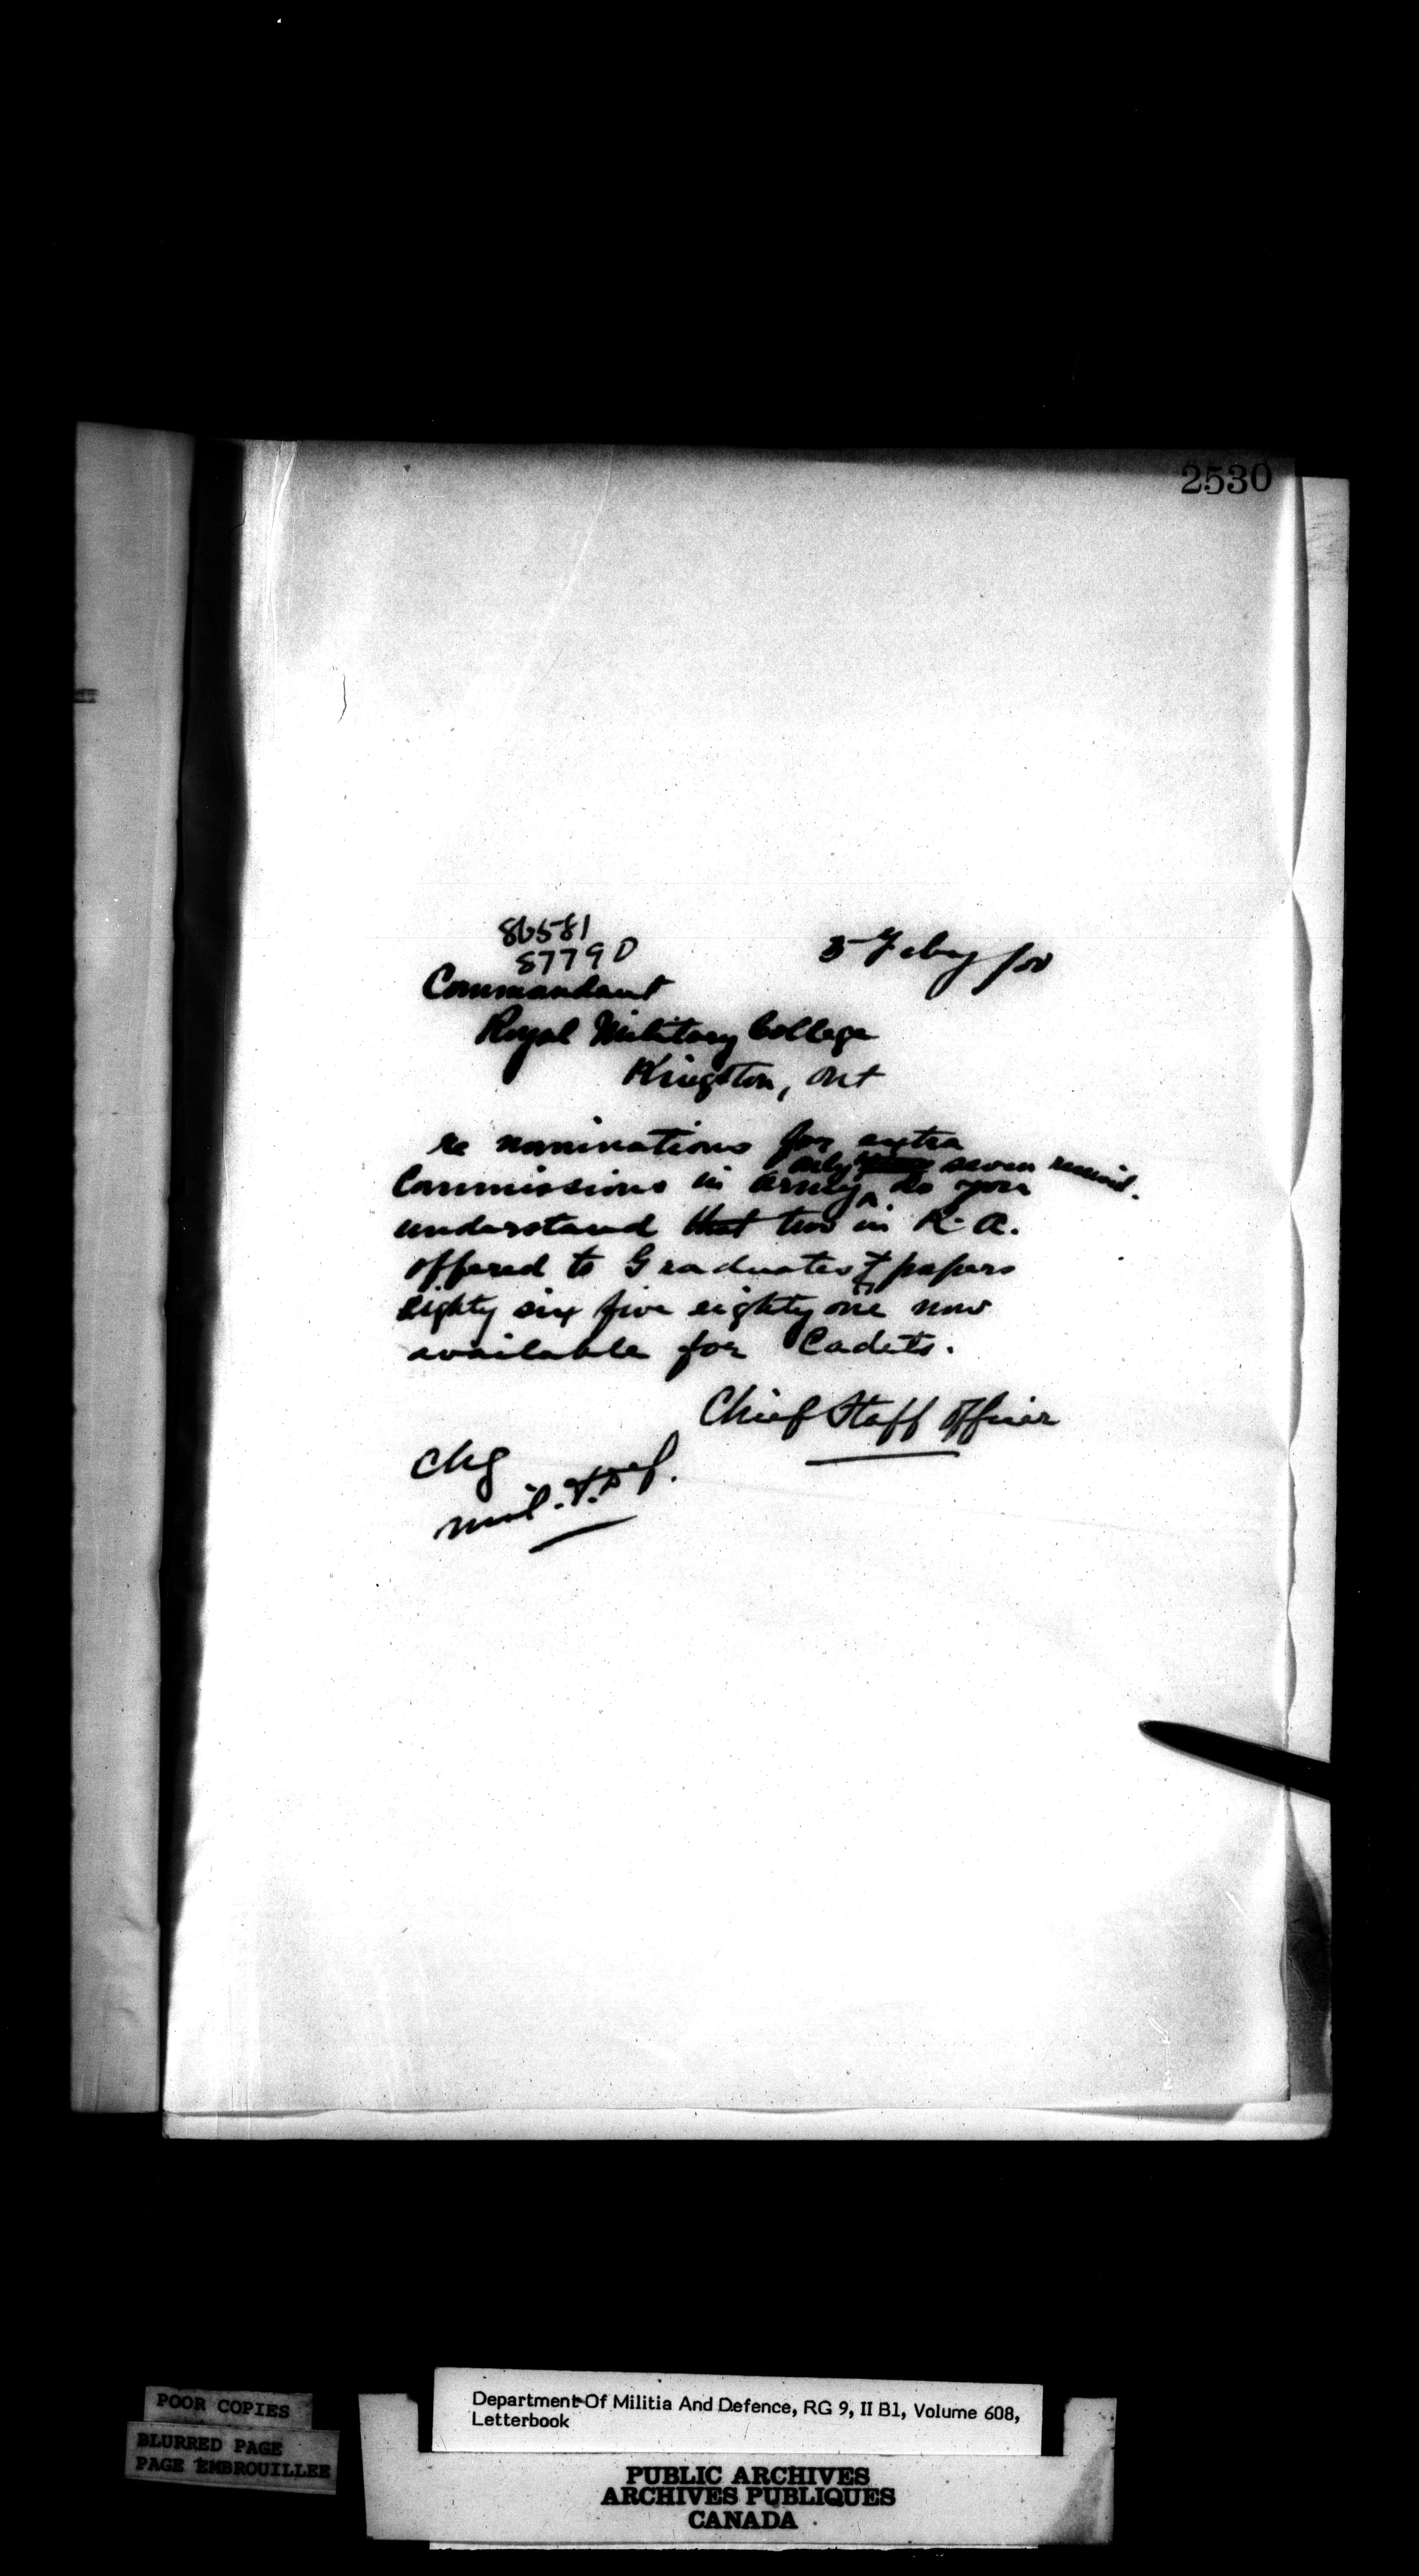 2530
86581
87790
5 Feby /00
Commandant
Royal Military College
Kingston, Ont
re nominations for extra
only seven received.
Commissions in army, do you
understand that two in R. A.
offered to Graduates papers
eighty six five eighty one now
available for Cadets.
Chief Staff Officer
Chg
Mil. & Def.
POOR COPIES
BLURRED PAGE
PAGE EMBROUILLEE
Department Of Militia And Defence, RG 9, II B1, Volume 608,
Letterbook
PUBLIC ARCHIVES
ARCHIVES PUBLIQUES
CANADA